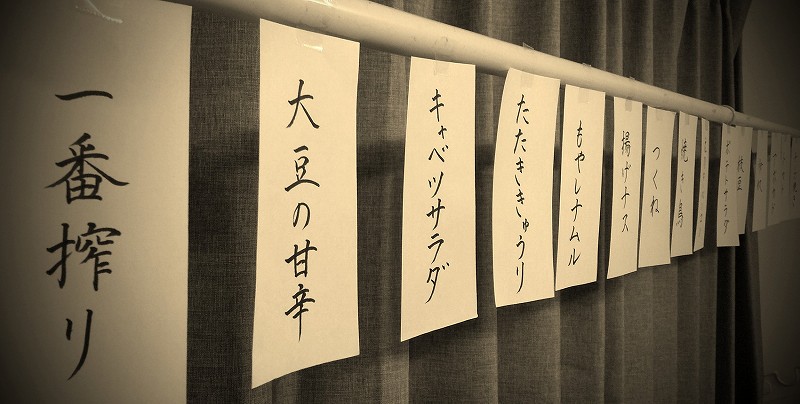 一番搾り
大豆の甘辛
キャベツサラダ
たたききゅうり
もやしナムル
揚げナス
つくね
焼き鳥
枝豆
ポテトサラダ